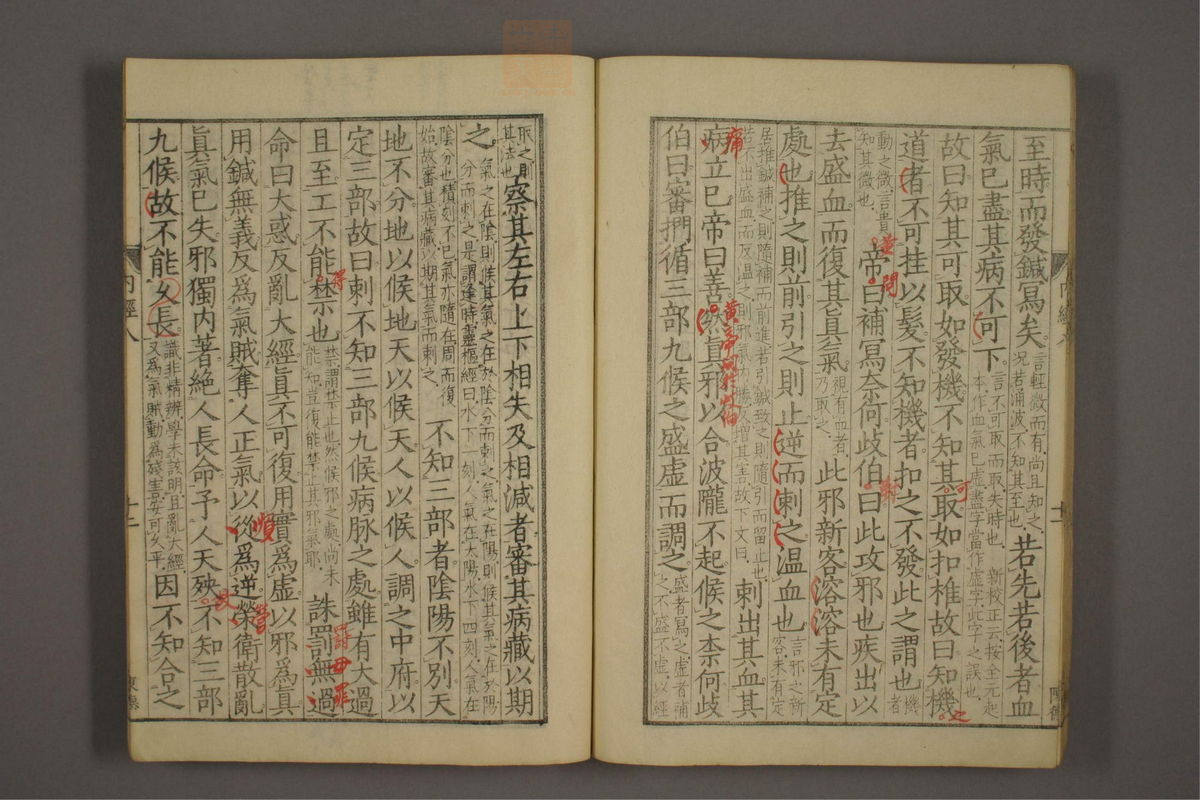 至時而發鍼寫矣言輕微而有尚且知之况若涌波不知其至也若先若後者血
氣已盡其病不可下言不可取而取失時也新校正云按全元起本作血氣已虛盡字當作虛字此字之誤也
故曰知其可取如發機不知其取如扣椎故曰知機
道者不可挂以髮不知機者扣之不發此之謂也機者
動之微言貴知其微也帝曰補寫奈何歧伯曰此攻邪也疾出以
去盛血而復其眞氣視有血者乃取之此邪新客溶溶未有定
處也推之則前引之則止逆而刺之温血也言邪之所客未有定
居推鍼補之則隨補而前進若引鍼致之則隨引而留止也若不出盛血而反温之則邪氣內勝反增其害故下文曰刺出其血其
病立已帝曰善然眞邪以合波隴不起候之柰何歧
伯曰審捫循三部九候之盛虛而調之盛者寫之虛者補之不盛不虛以經
取之則其法也察其左右上下相失及相減者審其病藏以期
之氣之在陰則候其氣之在於陰分而刺之氣之在陽則候其氣之在於陽分而刺之是謂逢時靈樞經曰水下一刻人氣在太陽水下四刻人氣在
陰分也積刻不已氣亦隨在周而復始故審其病藏以期其氣而刺之不知三部者陰陽不別天
地不分地以候地天以候天人以候人調之中府以
定三部故曰刺不知三部九候病脉之處雖有大過
且至工不能禁也禁謂禁止也然候邪之處尚未能知豈復能禁止其邪氣耶誅罰無過
命曰大惑反亂大經眞不可復用實爲虛以邪爲眞
用鍼無義反爲氣賊奪人正氣以從爲逆榮衛散亂
眞氣已失邪獨內著絕人長命予人天殃不知三部
九候故不能久長識非精辨學未該明且亂大經又爲氣賊動爲殘害安可久乎因不知合之
內經八
十二
痛
黃帝問於歧伯
黃
問
可
之
得
罰
毋
罪
順
營